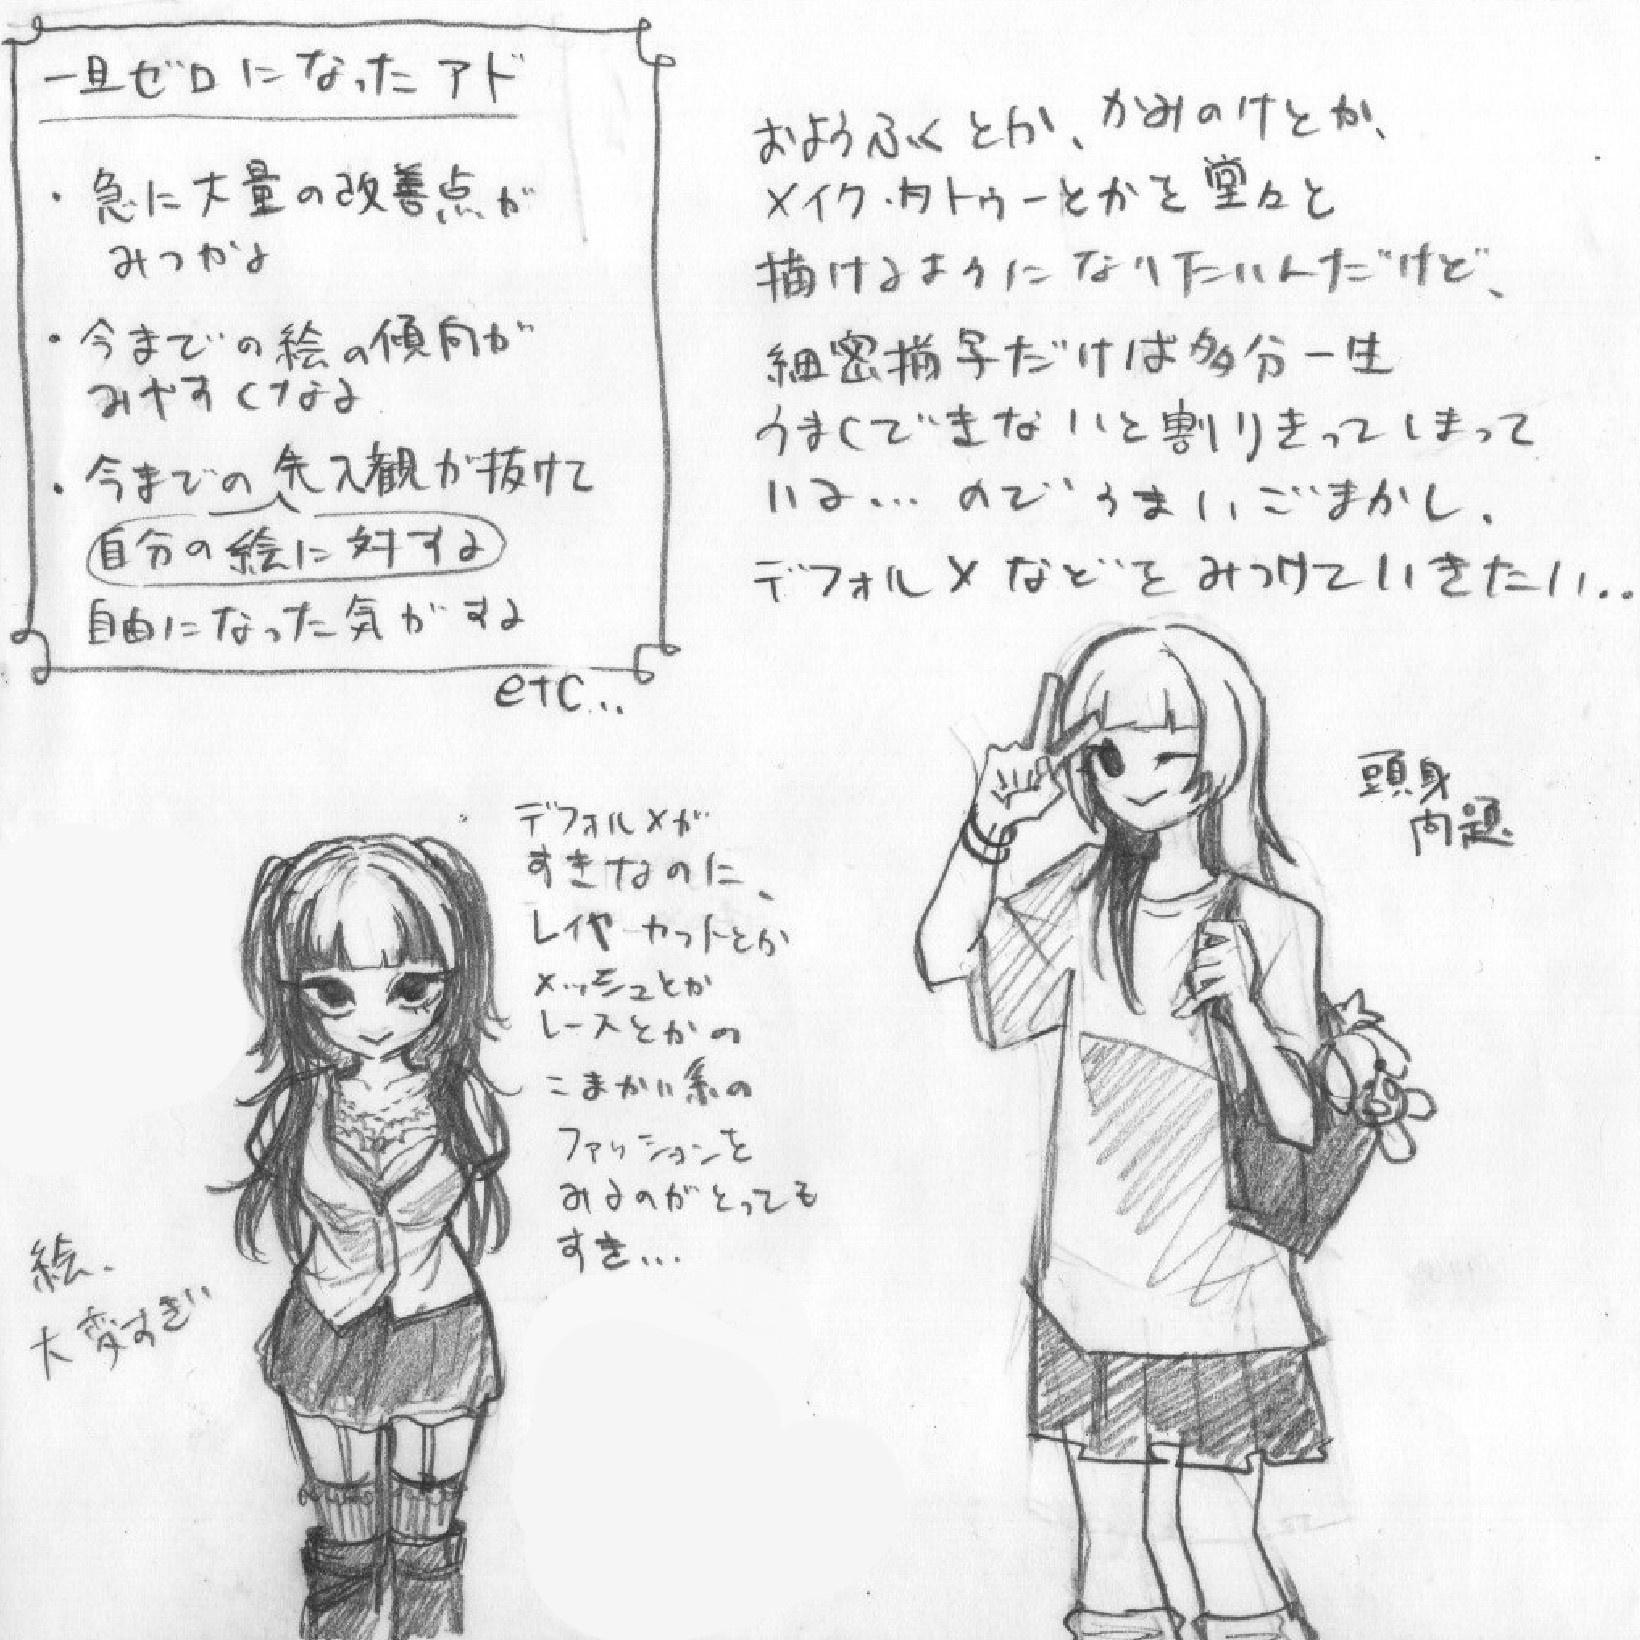 一旦ゼロになったアド
・急に大量の改善点が
みつかる
・今までの絵の傾向が
みやすくなる
・今までの先入観が抜けて
自分の絵に対する
自由になった気がする
etc...
おようふくとか、かみのけとか、
メイク・タトゥーとかを堂々と
描けるようになりたいんだけど、
細密描写だけは多分一生
うまくできないと割りきってしまって
いる...のでうまいごまかし、
デフォルメなどをみつけていきたい..
頭身
問題
デフォルメが
すきなのに、
レイヤーカットとか
メッシュとか
レースとかの
こまかい系の
ファッションを
みるのがとっても
すき...
絵、
大変すぎい